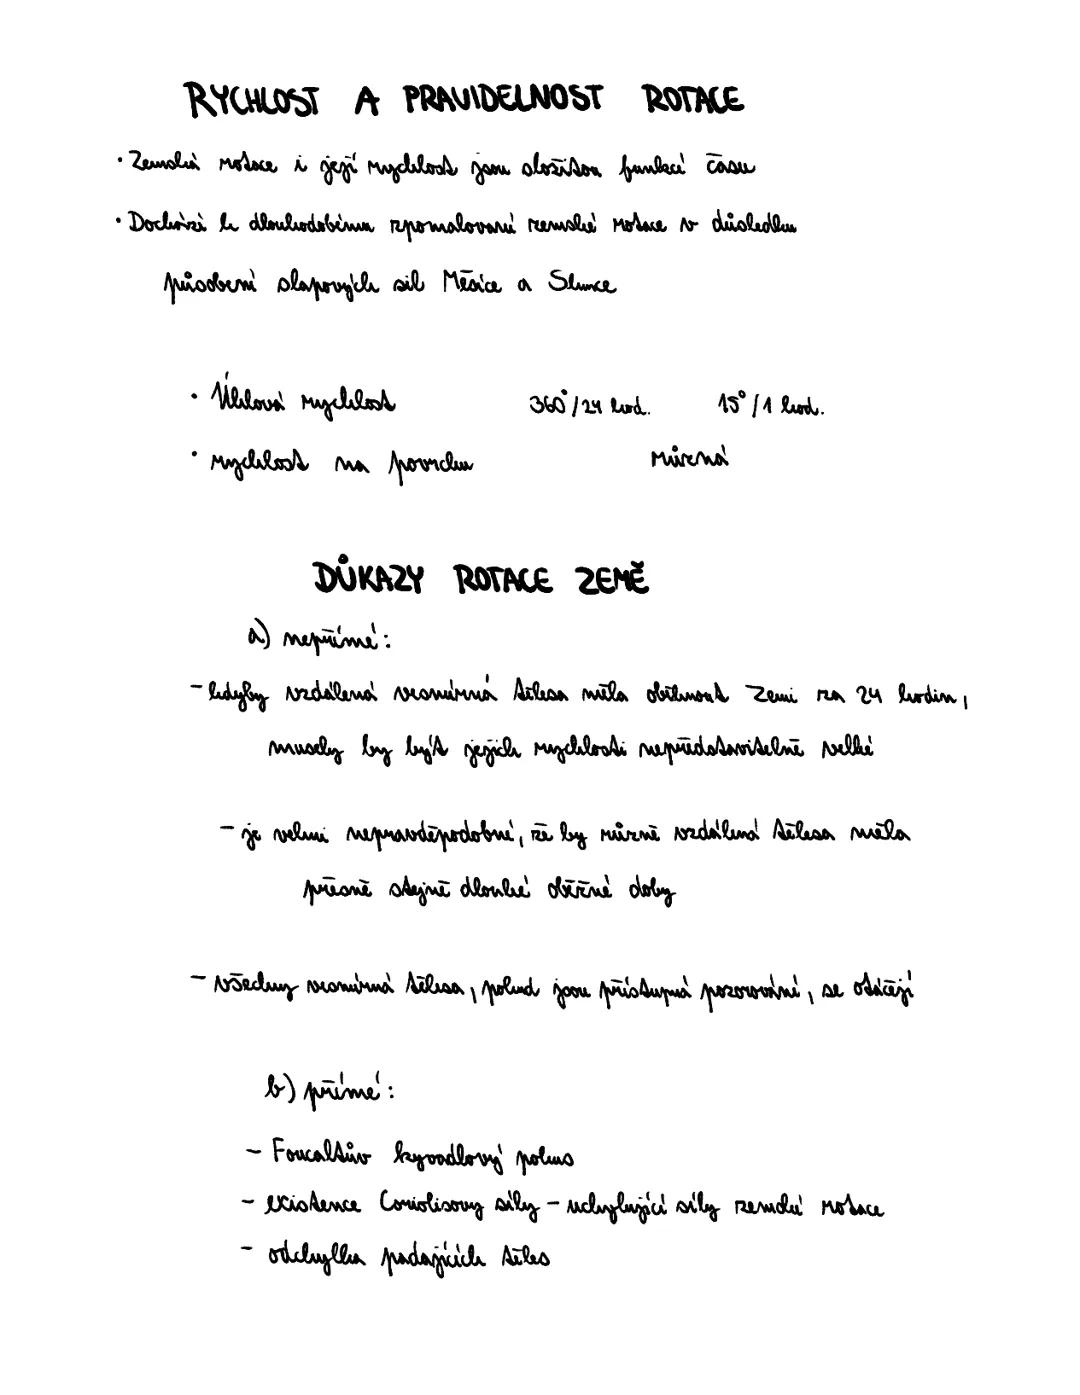 RYCHLOST A PRAVIDELNOST ROTACE
• Zemská rotace i její rychlost jsou složitou funkcí času
• Dochází k dlouhodobému zpomalování zemské rotace v důsledku
působení slapových sil Měsíce a Slunce
• Úhlová rychlost 360°/24 hod. 15°/1 hod.
• rychlost na povrchu různá
DŮKAZY ROTACE ZEMĚ
a) nepřímé:
- kdyby vzdálená vesmírná tělesa měla oběhnout Zemi za 24 hodin,
musely by být jejich rychlosti nepředstavitelně velké
- je velmi nepravděpodobné, že by různě vzdálená tělesa měla
přesně stejně dlouhé oběžné doby
- všechny vesmírná tělesa, pokud jsou přístupná pozorování, se otáčejí
b) přímé:
- Foucaltův kyvadlový pokus
- existence Coriolisovy síly - uchylující síly zemské rotace
- odchylka padajících těles